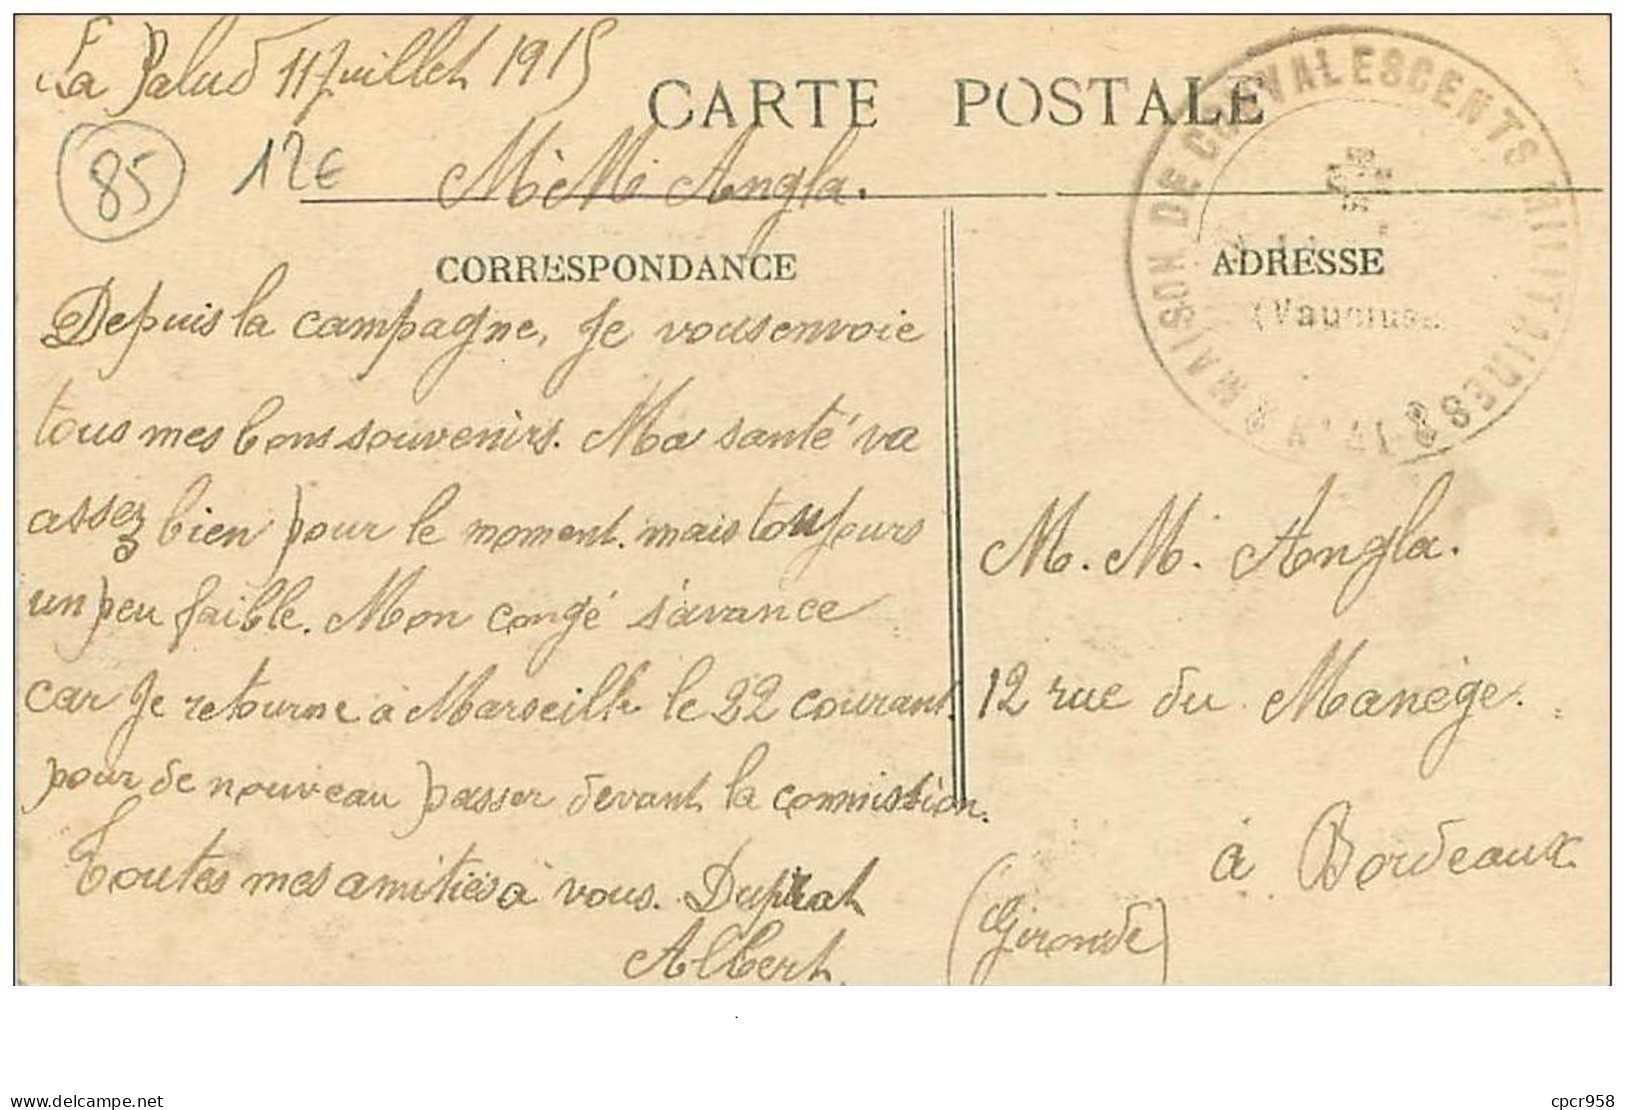 La Palud 11 juillet 1915
CARTE POSTALE
85
12€
M. M. Angla.
CORRESPONDANCE
ADRESSE
MAISON DE CONVALESCENTS MILITAIRES
(Vaucluse)
Depuis la campagne, je vous envoie
tous mes bons souvenirs. Ma santé va
assez bien pour le moment. mais toujours
un peu faible. Mon congé s'avance
car je retourne à Marseille le 22 courant.
pour de nouveau passer devant la commistion.
Toutes mes amitiés à vous. Duprat
Albert.
M. M. Angla.
12 rue du Manège.
à Bordeaux
(Gironde)
www.delcampe.net
cpcr958